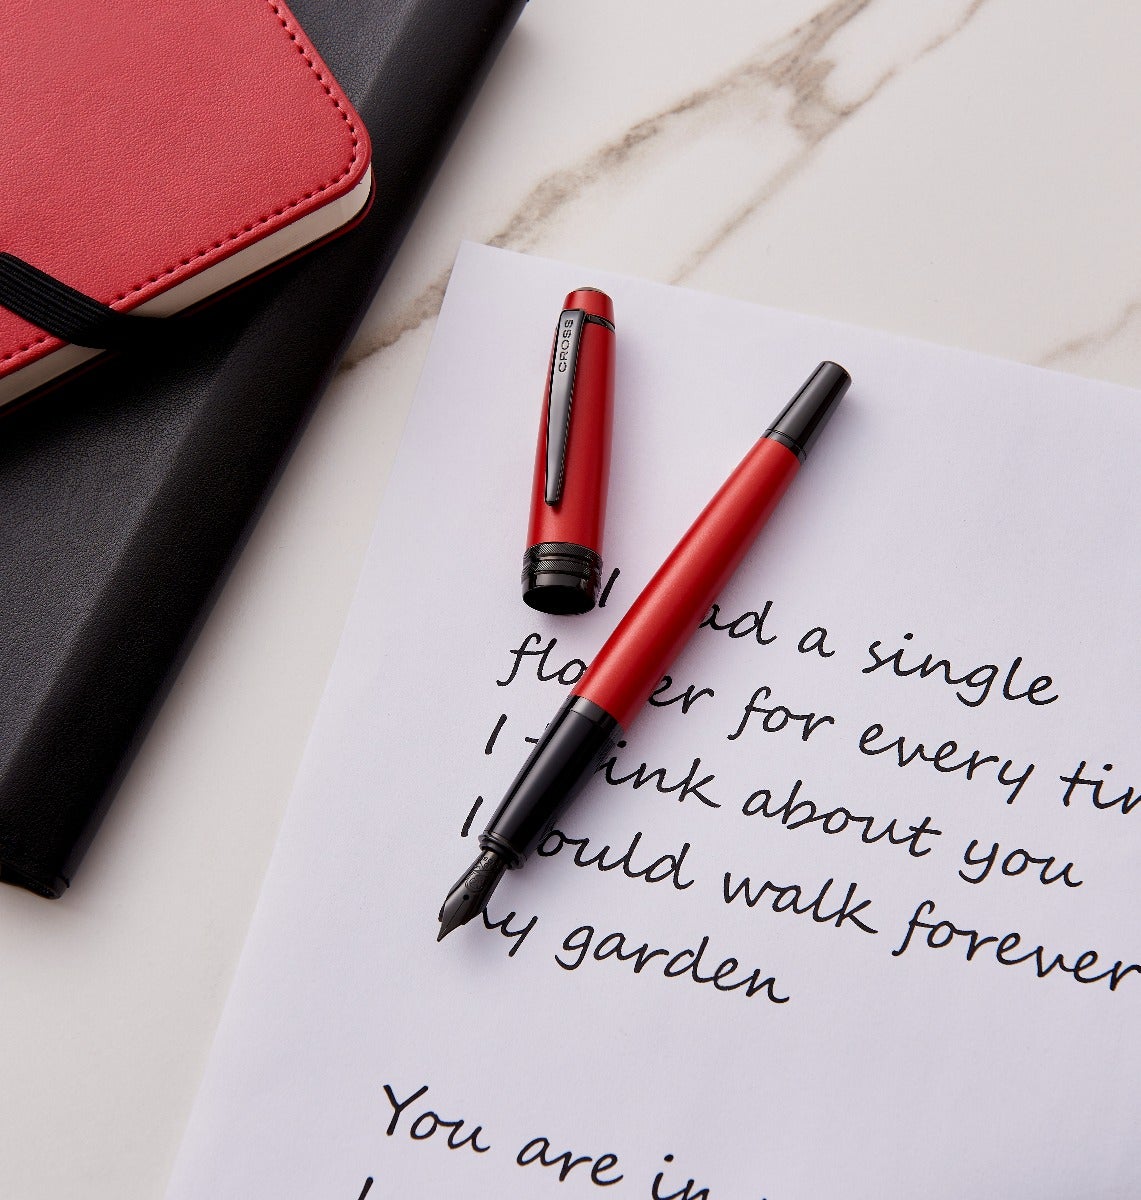 CROSS
I had a single
flower for every tim
I think about you
I could walk forever
my garden
You are in